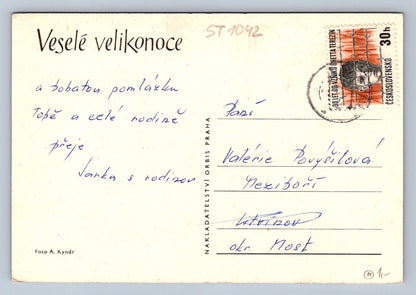 Veselé velikonoce
ST 1042
a bohatou pomlázku
Tobě a celé rodině
přeje
Jarka s rodinou
Foto A. Kyndr
NAKLADATELSTVÍ ORBIS PRAHA
30h
ČESKOSLOVENSKO
Paní
Valérie Povýšilová
Meziboří
Litvínov
okr. Most